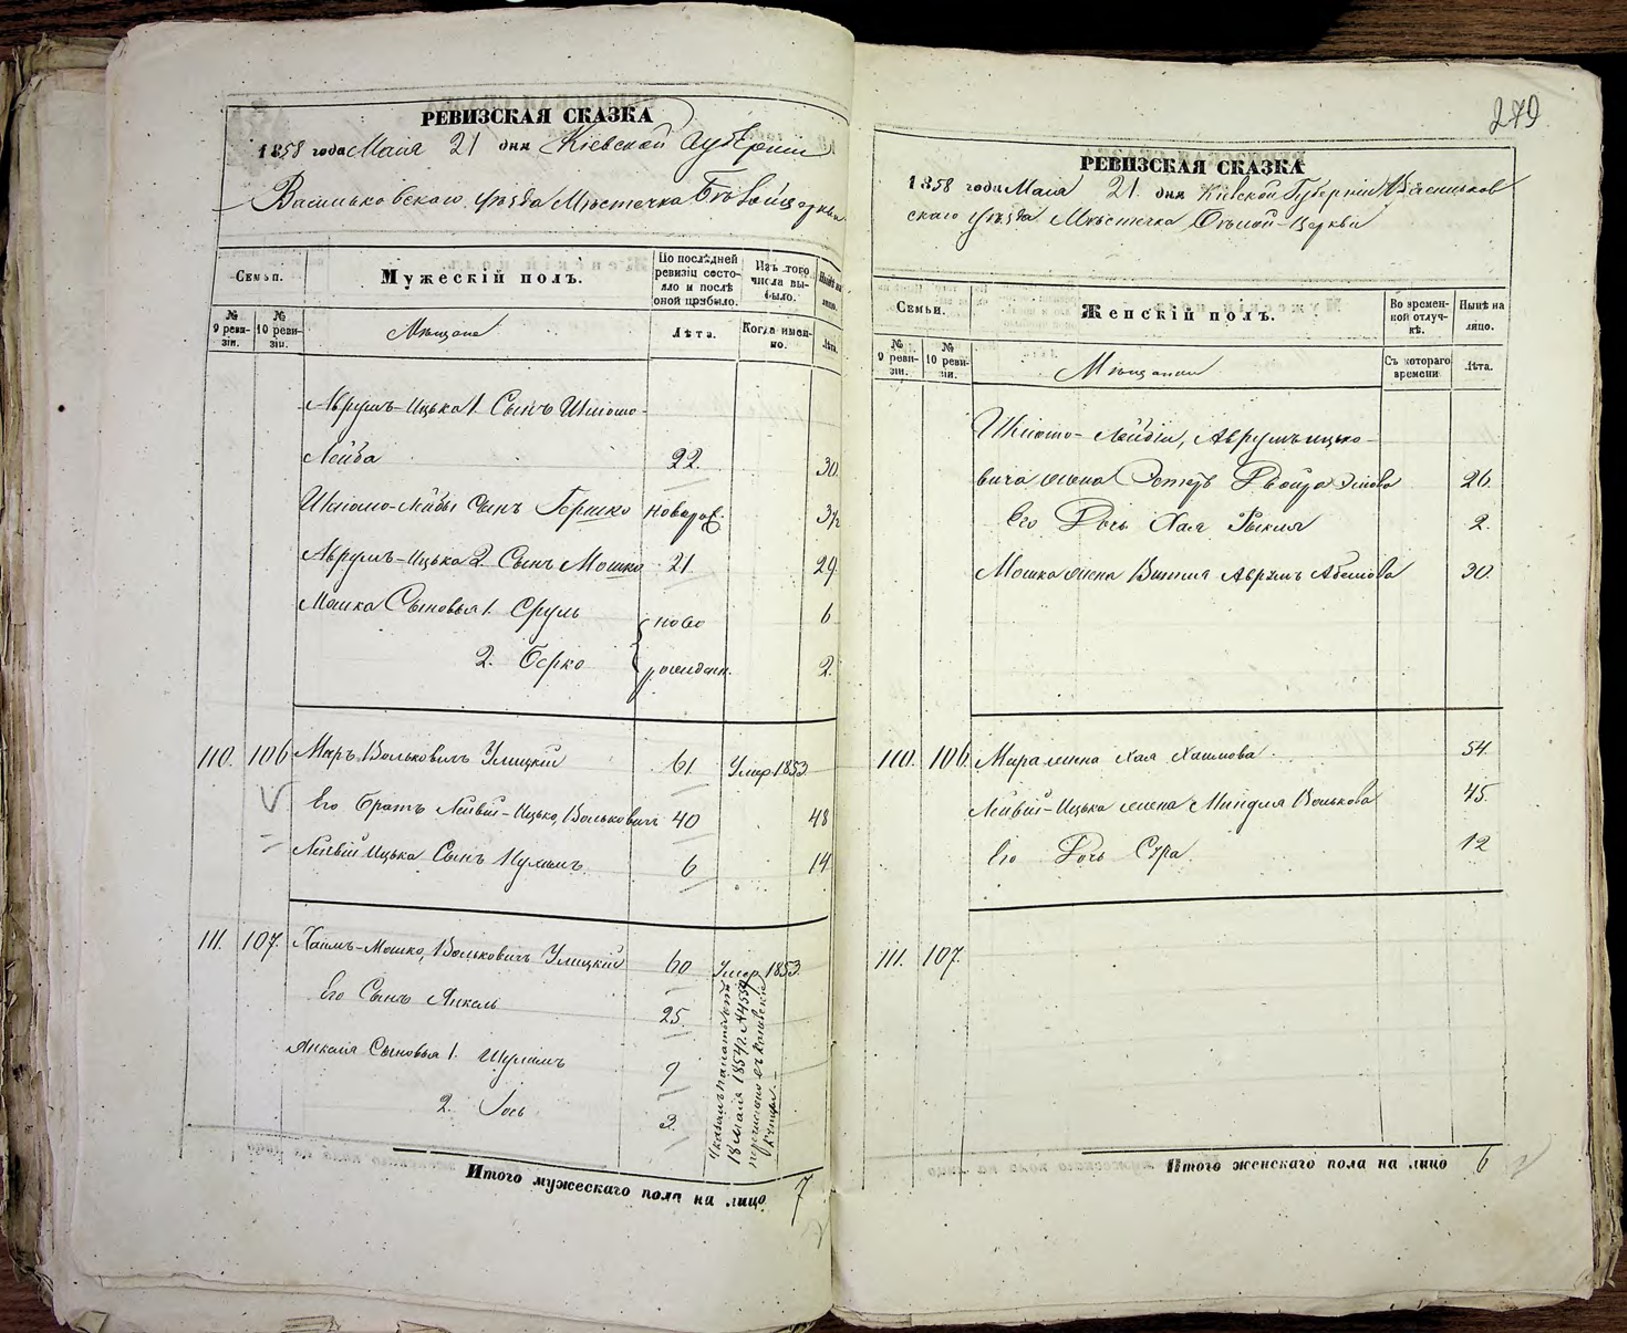 РЕВИЗСКАЯ СКАЗКА
1858 года Мая 21 дня Кіевской Губерніи
Васильковскаго уѣзда Мѣстечка Бѣлой церкви
Семьи.
Мужескій полъ.
По послѣдней ревизіи состояло и послѣ оной прибыло.
Изъ того числа выбыло.
Нынѣ на лицо.
№ 9 ревизіи.
№ 10 ревизіи.
Мѣщане
Лѣта.
Когда именно.
Лѣта.
Аврумъ-Ицька 1. Сынъ Шліомо-
Лейба 22. 30.
Шліомо-Лейбы сынъ Гершко новорож. 3½
Аврумъ-Ицька 2. Сынъ Мошко 21. 29.
Мошка Сыновья 1. Сруль ново 6
2. Берко рожденн. 2.
110. 106 Меръ Вольковичъ Улицкій 61 Умер. 1853.
Его братъ Лейвій-Ицько, Вольковичъ 40 48
Лейвій Ицька Сынъ 6 14
111. 107. Хаимъ-Мошко, Вольковичъ Улицкій 60 Умер. 1853.
Его Сынъ Янкель 25.
Янкеля Сыновья 1. Шулимъ 9
2. Іось 3.
Указомъ палаты отъ
18 Мая 1854 г. № 4559
перечислено въ
Итого мужескаго пола на лицо 7
279
РЕВИЗСКАЯ СКАЗКА
1858 года Мая 21. дня Кіевской Губерніи Васильков
скаго уѣзда Мѣстечка Бѣлой-Церкви
Семьи.
Женскій полъ.
Во временной отлучкѣ.
Нынѣ на лицо.
№ 9 ревизіи.
№ 10 ревизіи.
Мѣщанки
Съ котораго времени
Лѣта.
Шліомо-Лейби, Аврумъ ицько-
вича жена Эстеръ Двойра 26.
Его Дочь Хая Рыкля 2.
Мошка жена Аврумъ 30.
110. 106. Мера жена Хая Хаимова. 54.
Лейвій-Ицька жена Миндля Волькова 45.
Его Дочь Сура. 12
111. 107.
Итого женскаго пола на лицо 6